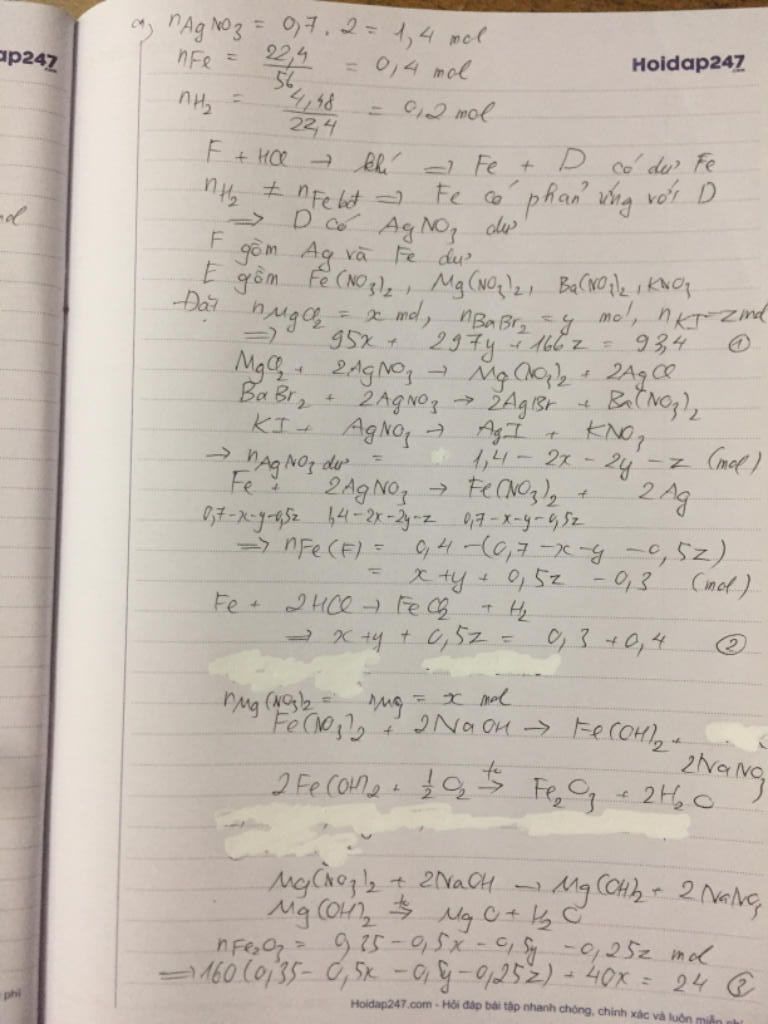 ap247
Hoidap247
a, nAgNO3 = 0,7 . 2 = 1,4 mol
nFe = 22,4/56 = 0,4 mol
nH2 = 4,48/22,4 = 0,2 mol
F + HCl → khí ⇒ Fe + D có dư Fe
nH2 ≠ nFe bđ ⇒ Fe có phản ứng với D
⇒ D có AgNO3 dư
F gồm Ag và Fe dư
E gồm Fe(NO3)2, Mg(NO3)2, Ba(NO3)2, KNO3
Đặt nMgCl2 = x mol, nBaBr2 = y mol, nKI = z mol
⇒ 95x + 297y + 166z = 93,4 ①
MgCl2 + 2AgNO3 → Mg(NO3)2 + 2AgCl
BaBr2 + 2AgNO3 → 2AgBr + Ba(NO3)2
KI + AgNO3 → AgI + KNO3
→ nAgNO3 dư = 1,4 - 2x - 2y - z (mol)
Fe + 2AgNO3 → Fe(NO3)2 + 2Ag
0,7-x-y-0,5z 1,4-2x-2y-z 0,7-x-y-0,5z
⇒ nFe(F) = 0,4 - (0,7 - x - y - 0,5z)
= x + y + 0,5z - 0,3 (mol)
Fe + 2HCl → FeCl2 + H2
⇒ x + y + 0,5z = 0,3 + 0,4 ②
nMg(NO3)2 = nMg = x mol
Fe(NO3)2 + 2NaOH → Fe(OH)2 +
2NaNO3
2Fe(OH)2 + 1/2 O2 →to Fe2O3 + 2H2O
Mg(NO3)2 + 2NaOH → Mg(OH)2 + 2NaNO3
Mg(OH)2 →to MgO + H2O
nFe2O3 = 0,35 - 0,5x - 0,5y - 0,25z mol
⇒ 160(0,35 - 0,5x - 0,5y - 0,25z) + 40x = 24 ③
phí
Hoidap247.com - Hỏi đáp bài tập nhanh chóng, chính xác và luôn miễn phí